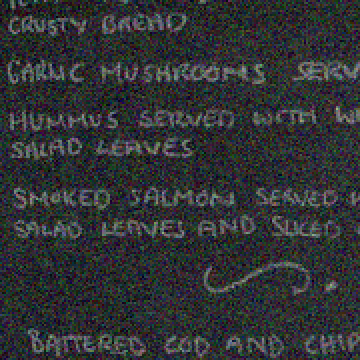 CRUSTY BREAD
GARLIC MUSHROOMS
HUMMUS SERVED WITH
SALAD LEAVES
SMOKED SALMON SERVED
SALAD LEAVES AND SLICED
BATTERED COD AND